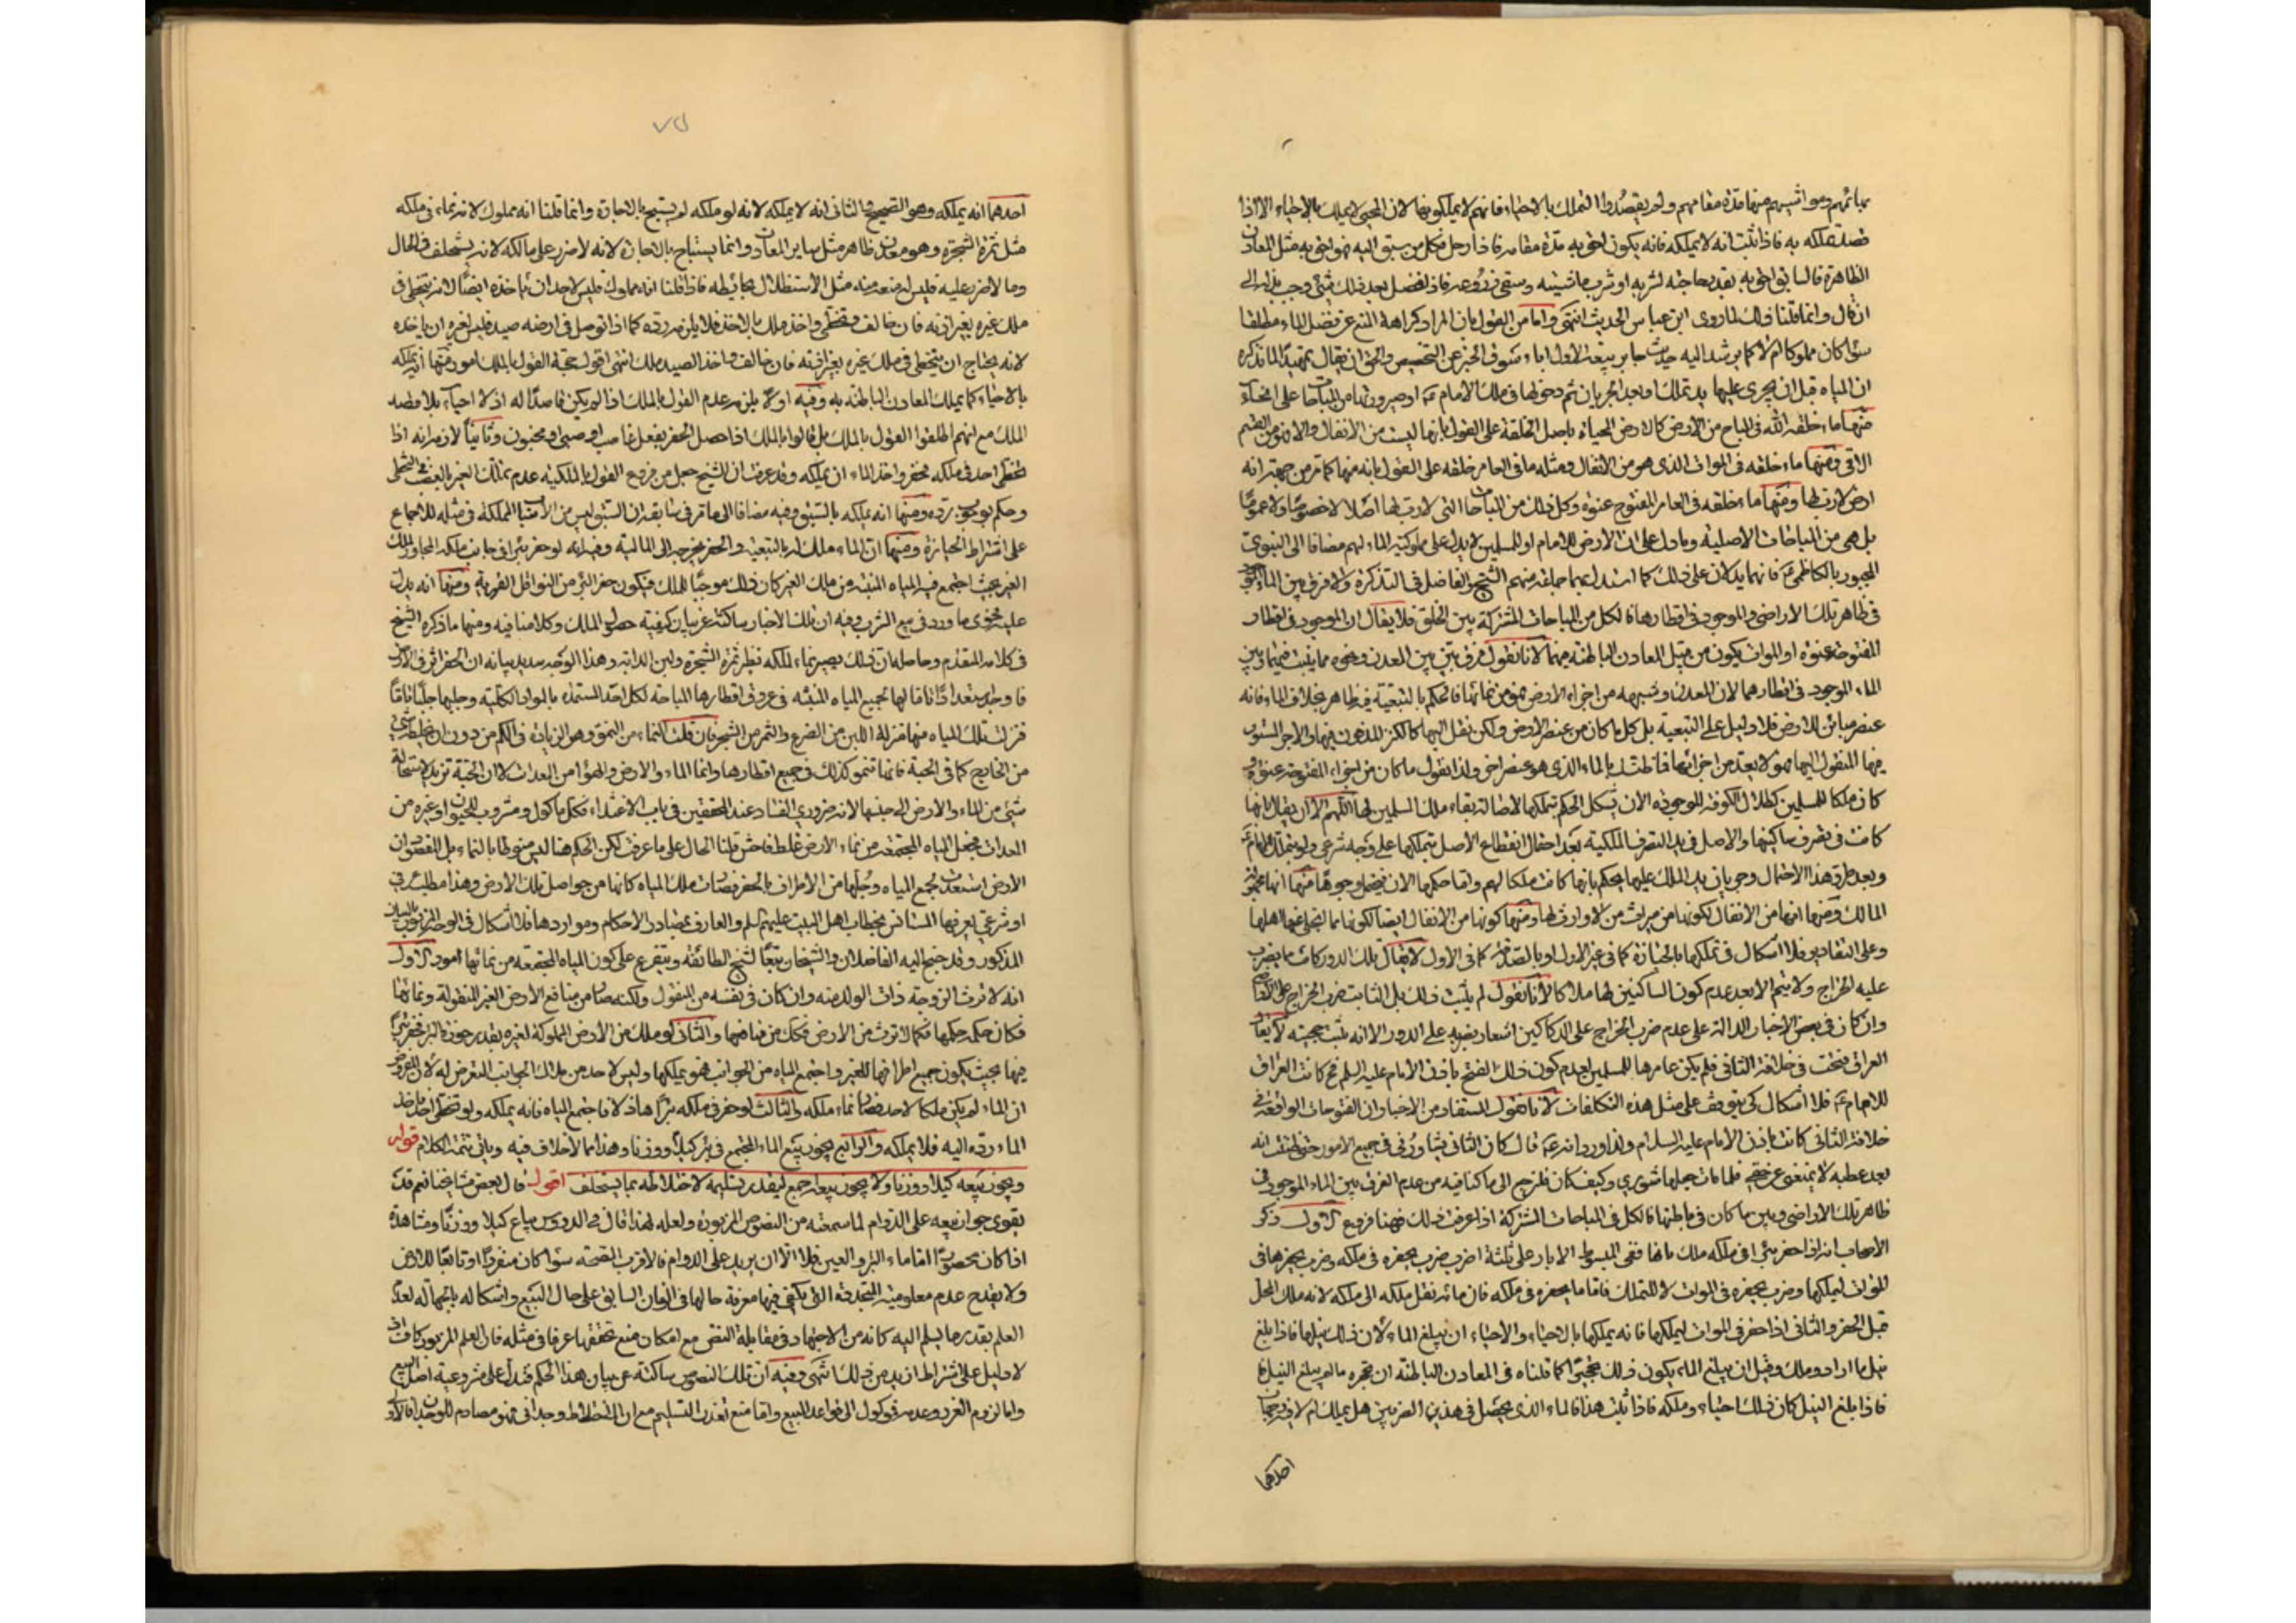 بهائمهم ومواشيهم منها مدة مقامهم ولم يقصدوا التملك بالاحياء فانهم لا يملكونها لان المحيى لا يملك بالاحياء الا اذا
قصد تملكه به فاذا ثبت انه لا يملكه فانه يكون احق به مدة مقامه فاذا رحل فكل من سبق اليه فهو احق به مثل المعادن
الظاهرة فالسابق احق به بقدر حاجته لشربه او شرب ماشيته وسقى زروعه فاذا فضل بعد ذلك شئ وجب بذله الى
ان قال وانما قلنا ذلك لما روى ابن عباس الحديث انتهى واما من القول بان المراد كراهة المنع عن فضل الماء مطلقا
سواء كان مملوكا ام لا كما يرشد اليه حديث جابر ببقية الاول اباء سوق الخبر عن التخصيص والحق ان يقال تمهيدا لما نذكره
ان المياه قبل ان يجرى عليها يد تملك وبعد الجريان ثم دخولها فى ملك الامام ع او صيرورتها من المباحات على انحاء
منها ماء خلقه الله فى المباح من الارض كالارض المحياة باصل الخلقة على القول بانها ليست من الانفال والا فهو من القسم
الاتى ومنها ماء خلقه فى الموات الذى هو من الانفال ومثله ما فى العامر خلقة على القول بانه منها كما مر من جهة انه
ارض لا رب لها ومنها ماء خلقه فى العامر المفتوح عنوة وكل ذلك من المباحات التى لا رب لها اصلا لا خصوصا ولا عموما
بل هى من المباحات الاصلية وما دل على ان الارض للامام او للمسلمين لا يدل على ملوكية الماء لهم مضافا الى النبوى
المجبور بالكاظمى ع فانهما يدلان على ذلك كما استدل بهما جماعة منهم الشيخ والفاضل فى التذكرة ولا فرق بين الماء الموجود
فى ظاهر تلك الاراضى والموجود فى اقطارها فالكل من المباحات المشتركة بين الخلق فلا يقال ان الموجود فى اقطار
المفتوحة عنوة او الموات يكون من قبيل المعادن الباطنة منهما لانا نقول فرق بين بين المعدن ونحوه مما ينبت فيهما وبين
الماء الموجود فى اقطارهما لان المعدن وشبهه من اجزاء الارض فهو من نمائها فالحكم بالتبعية فيه ظاهر بخلاف الماء فانه
عنصر مباين للارض فلا دليل على التبعية بل كل ما كان من عنصر الارض ولكن نقل اليها كالكنز المدفون فيها والاجر المنسوب
فيها المنقول اليها فهو لا يعد من اجزائها فما ظنك بالماء الذى هو عنصر اخر ولذا نقول ما كان من اجزاء المفتوحة عنوة و
كان ملكا للمسلمين كطلال الكوفة الموجودة الان يشكل الحكم بتملكها لاصالة بقاء ملك المسلمين لها اللهم الا ان يقال بانها
كانت فى تصرف ساكنيها والاصل فى يد التصرف الملكية بعد احتمال انقطاع الاصل بتملكها على وجه شرعى ولو بتمليك الامام ع
وبعد طرق هذا الاحتمال وجريان يد الملك عليها يحكم بانها كانت ملكا لهم واما حكمها الان فيحتمل وجوها منها انها مجهولة
المالك ومنها انها من الانفال لكونها من ميراث من لا وارث لها ومنها كونها من الانفال ايضا لكونها مما انجلى عنها اهلها
وعلى التقادير فلا اشكال فى تملكها بالحيازة كما فى غير الاول او بالتصدق كما فى الاول لا يقال تلك الدور كانت ما يضرب
عليه الخراج ولا يتم الا بعد عدم كون الساكنين لها ملاكا لانا نقول لم يثبت ذلك بل الثابت ضرب الخراج على الاراضى
وان كان فى بعض الاخبار الدالة على عدم ضرب الخراج على الدكاكين اشعار بضربه على الدور الا انه لم يثبت حجيته لا يقال
العراق فتحت فى خلافة الثانى فلم يكن عامرها للمسلمين لعدم كون ذلك الفتح باذن الامام عليه السلم فح كانت العراق
للامام ع فلا اشكال كى يتوقف على مثل هذه التكلفات لانا نقول المستفاد من الاخبار ان الفتوحات الواقعة فى
خلافة الثانى كانت باذن الامام عليه السلام ولذا ورد انه ع قال كان الثانى يشاورنى فى جميع الامور حتى ظننت انه
بعد عطبه لا يمنعنى عن حقى فلما مات جعلها شورى وكيف كان فلنرجع الى ما كنا فيه من عدم الفرق بين الماء الموجود فى
ظاهر تلك الاراضى وبين ما كان فى باطنها فالكل فى المباحات المشتركة اذا عرفت ذلك فهنا فروع الاول ذكر
الاصحاب انه اذا حفر بئرا فى ملكه ملك ماءها ففى المبسوط الابار على ثلثة اضرب ضرب يحفره فى ملكه وضرب يحفرها فى
الموات ليملكها وضرب يحفره فى الموات لا للتملك فاما ما يحفره فى ملكه فان مائه نقل ملكه الى ملكه لانه ملك المحل
قبل الحفر والثانى اذا حفر فى الموات ليملكها فانه يملكها بالاحياء والاحياء ان يبلغ الماء لان ذلك نيلها فاذا بلغ
نيل ما اراد وملك وقبل ان يبلغ الماء يكون ذلك تحجيرا كما قلناه فى المعادن الباطنة ان تحجره ما لم يبلغ النيل فا
فاذا بلغ النيل كان ذلك احياء وملكه فاذا ثبت هذا فالماء الذى يحصل فى هذين الضربين هل يملك ام لا فيه وجهان
احدهما
٧٥
احدهما انه يملكه وهو الصحيح والثانى انه لا يملكه لانه لو ملكه لم يستبح بالاجارة وانما قلنا انه مملوك لانه نماء فى ملكه
مثل ثمرة الشجرة وهو معدن ظاهر مثل ساير المعادن وانما يستباح بالاجارة لانه لا ضرر على مالكه لانه يستخلف فى الحال
وما لا ضرر عليه فليس له منعه منه مثل الاستظلال بحائطه فاذا قلنا انه مملوك فليس لاحد ان ياخذه ايضا لانه يتخطى فى
ملك غيره بغير اذنه فان خالف وتخطى واخذ ملك بالاخذ فلا يلزمه رده كما اذا توحل فى ارضه صيد فليس لغيره ان ياخذه
لانه يحتاج ان يتخطى فى ملك غيره بغير اذنه فان خالف واخذ الصيد ملك انتهى اقول حجة القول بالملك امور منها انه يملكه
بالاحياء كما يملك المعادن الباطنة به وفيه اولا يلزمه عدم القول بالملك اذا لم يكن قاصدا له اذ لا احياء بلا قصد
الملك مع انهم اطلقوا القول بالملك بل قالوا بالملك اذا حصل الحفر بفعل غاصب او صبى او مجنون وثانيا لازمه انه اذا
تخطى احد فى ملكه فحفر واخذ الماء ان يملكه وقد عرفت ان الشيخ جعل من فروع القول بالملكية عدم تملك الغير بالغصب فى التخطى
وحكم بوجوب رده ومنها انه يملكه بالسبق وفيه مضافا الى ما مر فى سابقه ان السبق ليس من الاسباب المملكة فى مثله للاجماع
على اشتراط الحيازة ومنها ان الماء ملك له بالتبعية والحفر يخرجه الى المالية وفيه انه لو حفر بئرا فى جانب ملكه المجاور لملك
الغير بحيث اجتمع فيه المياه المنبثة من ملك الغير كان ذلك موجبا للملك فيكون حفر البئر من النواقل القهرية ومنها انه يدل
عليه فحوى ما ورد فى بيع الشرب وفيه ان تلك الاخبار ساكتة عن بيان كيفية حصول الملك وكلامنا فيه ومنها ما ذكره الشيخ
فى كلامه المتقدم وحاصله ان ذلك يصير نماء لملكه نظير ثمرة الشجرة ولبن الدابة وهذا الوجه سديد بيانه ان الحفر اثر فى الارض
فاوجد استعدادا تاما لها لجميع المياه المنبثة فى عروق اقطارها المباحة لكل احد المستمدة بالمواد الكلية وجلبها جلبا تاما
فنزلت تلك المياه منها منزلة اللبن من الضرع والثمر من الشجر فان قلت النماء من النمو وهو الزيادة فى الكم من دون ان يخلط شئ
من الخارج كما فى الحبة فانها تنمو كذلك فى جميع اقطارها وانما الماء والارض والهواء من المعدات لا ان الحبة تزيد لاستحالة
شئ من الماء والارض الى جنسها لانه ضرورى الفساد عند المحققين فى باب الاغتذاء فكل ماكول ومشروب للحيوان وغيره من
المعدات فجعل المياه المجتمعة من نماء الارض غلط فاحش قلنا الحال على ما عرفت لكن الحكم هنا ليس منوطا بالنماء بل المقصود ان
الارض استعدت لجمع المياه وجلبها من الاطراف بالحفر فصارت ملك المياه كانها من حواصل تلك الارض وهذا مطلب عرفى
او شرعى يعرفها المستانس بخطاب اهل البيت عليهم السلم والعارف بمصادر الاحكام ومواردها فلا اشكال فى الوجه المزبور بالبيان
المذكور وقد جنح اليه الفاضلان والشيخان تبعا لشيخ الطائفة ويتفرع على كون المياه المجتمعة من نمائها امور الاول
انه لا ترث الزوجة ذات الولد منه وان كان فى نفسه من المنقول ولكنه صار من منافع الارض الغير المنقولة ونمائها
فكان حكمه حكمها فكما لا ترث من الارض فكذلك من مياهها والثانى لو ملك من الارض المملوكة لغيره بقدر حفرة البئر فحفر بئرا
فيها بحيث يكون جميع اطرافها للغير واجتمع المياه من الجوانب فهو يملكها وليس لاحد من ملاك الجوانب التعرض له لان المفروض
ان الماء لم يكن ملكا لاحد فصار نماء ملكه والثالث لو حفر فى ملكه بئرا هناك فاجتمع المياه فانه يملكه ولو تخطى احد فاخذ
الماء رده اليه فلا يملكه والرابع يجوز بيع الماء المجتمع فى بئر كيلا ووزنا وهذا مما لا خلاف فيه وياتى تتمة الكلام قوله
ويجوز بيعه كيلا ووزنا ولا يجوز بيعه اجمع لتعذر تسليمه لاختلاطه بما يستخلف اقول قال بعض مشايخنا نعم قد
يقوى جواز بيعه على الدوام لما سمعته من النصوص المزبورة ولعله لهذا قال فى الدروس يباع كيلا ووزنا ومشاهدة
اذا كان محصورا اما ماء البئر والعين فلا الا ان يريد على الدوام فالاقرب الصحة سواء كان منفردا او تابعا للارض
ولا يقدح عدم معلومية المتجدد منه التى يكتفى فيها معرفة حالها فى الزمان السابق على حال البيع واشكاله بالجهالة لعدم
العلم بقدر ما يسلم اليه كانه من الاجتهاد فى مقابلة النص مع امكان منع تحققها عرفا فى مثله فان العلم المزبور كاف اذ
لا دليل على اشتراط ازيد من ذلك انتهى وفيه ان تلك النصوص ساكتة عن بيان هذا الحكم فتدل على مشروعية اصل البيع
واما لزوم الغرر وعدمه فموكول الى قواعد البيع واما منع تعذر التسليم مع ان الاختلاط وجدانى فهو مصادم للوجدان فالاولى